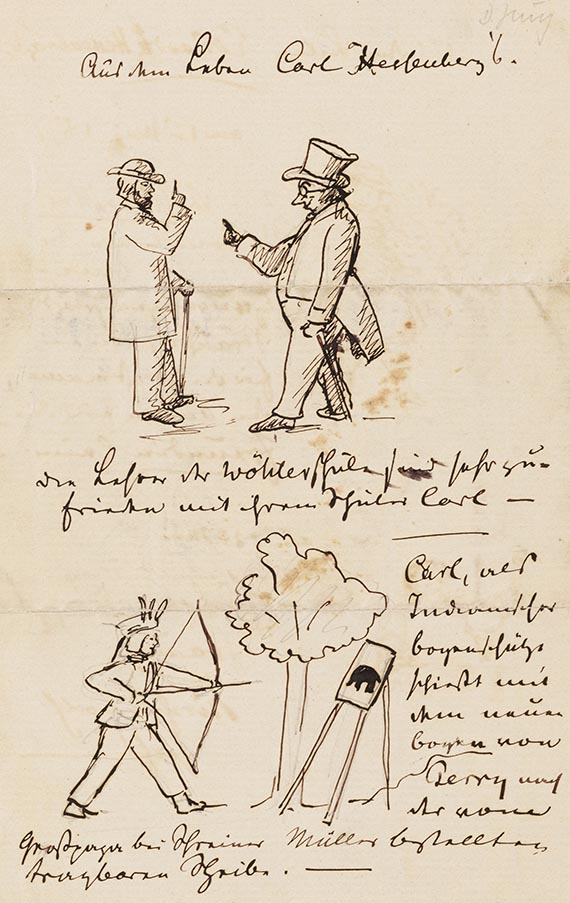 Aus dem Leben Carl Hessenberg's.
die Lehrer der Wöhlerschule sind sehr zu=
frieden mit ihrem Schüler Carl —
Carl, als
Indianischer
bogenschütze
schießt mit
dem neuen
bogen von
Perry nach
der vom
Großpapa bei Schreiner Müller bestellten
tragbaren Scheibe. —